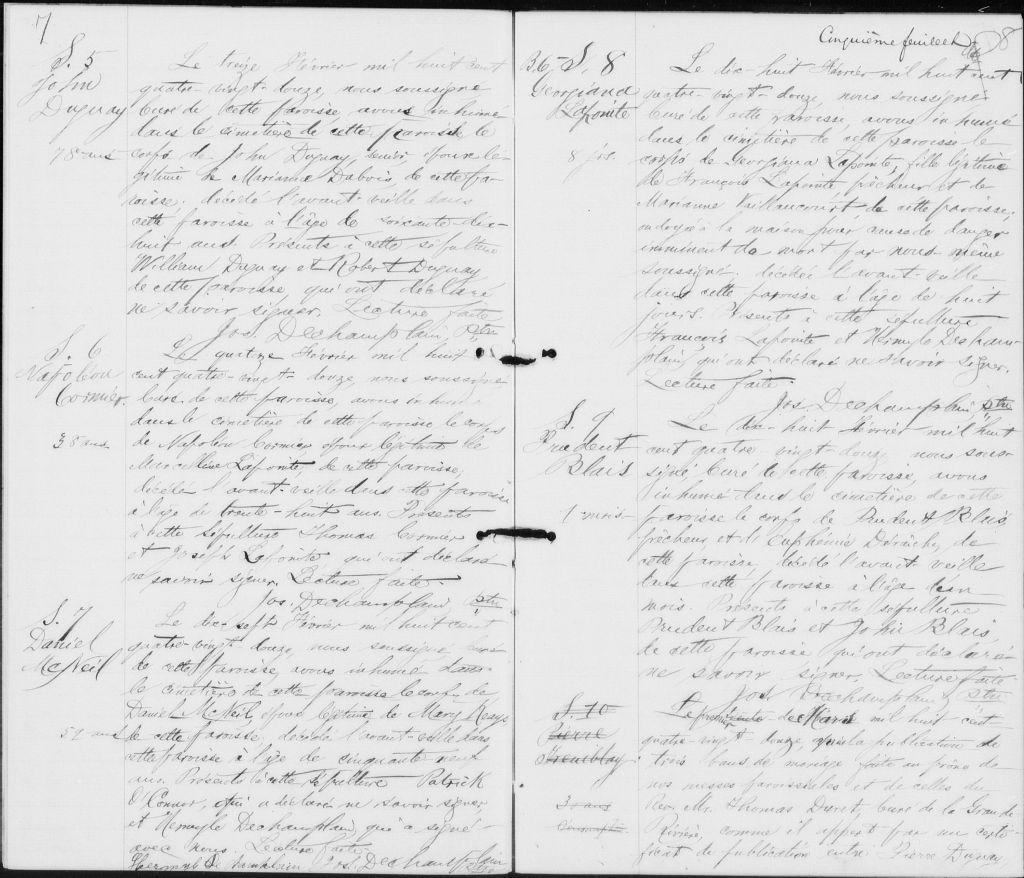 7
S. 5
John
Duguay
78 ans
Le treize Février mil huit cent
quatre-vingt-douze, nous soussigné
Curé de cette paroisse, avons inhumé
dans le cimetière de cette paroisse le
corps de John Duguay, senior époux lé-
gitime de Marianne Dubois de cette pa-
roisse, décédé l'avant-veille dans
cette paroisse à l'âge de soixante-dix-
huit ans. Présents à cette sépulture
William Duguay et Robert Duguay
de cette paroisse qui ont déclaré
ne savoir signer. Lecture faite
Jos. Dechamplain, Ptre
S. 6
Napoléon
Cormier
38 ans
Le quatze Février mil huit
cent quatre-vingt-douze, nous soussigné
Curé de cette paroisse, avons inhumé
dans le cimetière de cette paroisse le corps
de Napoléon Cormier époux légitime de
Lapointe, de cette paroisse,
décédé l'avant-veille dans cette paroisse
à l'âge de trente-huit ans. Présents
à cette sépulture Thomas Cormier
et Joseph Lapointe qui ont déclaré
ne savoir signer. Lecture faite.
Jos. Dechamplain, Ptre
S. 7
Daniel
McNeil
59 ans
Le dix-sept Février mil huit cent
quatre-vingt-douze, nous soussigné Curé
de cette paroisse, avons inhumé dans
le cimetière de cette paroisse le corps de
Daniel McNeil, époux légitime de Mary Keays
de cette paroisse, décédé l'avant-veille dans
cette paroisse à l'âge de cinquante neuf
ans. Présents à cette sépulture Patrick
O'Connor, qui a déclaré ne savoir signer
et Hermyle Dechamplain, qui a signé
avec nous. Lecture faite.
Jos. Dechamplain
Ptre
Cinquième feuillet
8
B. 6 - S. 8
Georgiana
Lapointe
8 jrs.
Le dix-huit Février mil huit cent
quatre-vingt-douze, nous soussigné
Curé de cette paroisse, avons inhumé
dans le cimetière de cette paroisse le
corps de Georgiana Lapointe, fille légitime
de François Lapointe pêcheur et de
Marianne Vaillancourt, de cette paroisse,
ondoyée à la maison pour cause de danger
imminent de mort par nous même
soussigné, décédée l'avant-veille
dans cette paroisse à l'âge de huit
jours. Présents à cette sépulture
François Lapointe et Hermyle Decham-
plain, qui ont déclaré ne savoir signer.
Lecture faite.
Jos. Dechamplain, Ptre
S. 9
Prudent
Blais
1 mois
Le dix-huit Février mil huit
cent quatre-vingt-douze, nous sous-
signé Curé de cette paroisse, avons
inhumé dans le cimetière de cette
paroisse le corps de Prudent Blais,
pêcheur et de Euphémie de
cette paroisse, décédé l'avant veille
dans cette paroisse à l'âge d'un
mois. Présents à cette sépulture
Prudent Blais et John Blais,
de cette paroisse qui ont déclaré
ne savoir signer. Lecture faite
Jos. Dechamplain, Ptre
S. 10
Pierre
Tremblay
3 ans
Le premier de Mars mil huit cent
quatre-vingt douze, après la publication de
trois bans de mariage faite au prône de
nos messes paroissiales et de celles du
Rev. Mr. Thomas Duret, Curé de la Grande
Rivière, comme il appert par un certi-
ficat de publication entre Pierre Duguay,